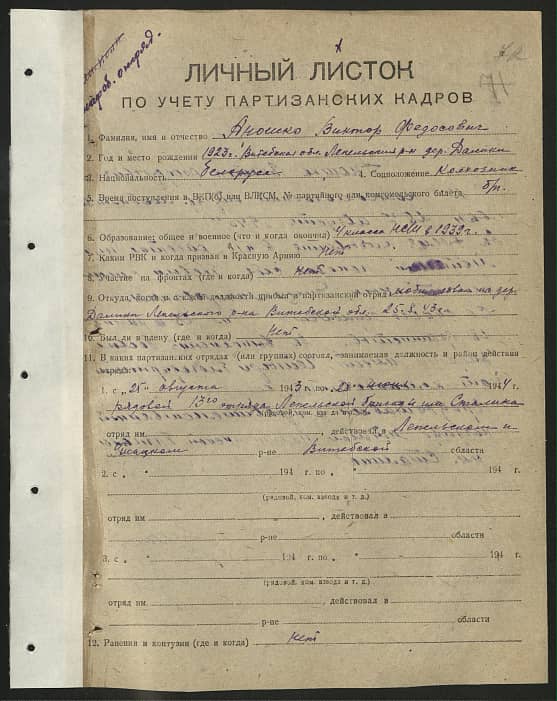 ЛИЧНЫЙ ЛИСТОК
ПО УЧЕТУ ПАРТИЗАНСКИХ КАДРОВ
1. Фамилия, имя и отчество Аношко Виктор Федосович
2. Год и место рождения 1923 г. Витебская обл. Лепельский р-н дер. Далики
3. Национальность белорус 4. Соцположение Колхозник
5. Время поступления в ВКП(б) или ВЛКСМ, № партийного или комсомольского билета б/п.
6. Образование: общее и военное (что и когда окончил) 4 класса НСШ в 1939 г.
7. Каким РВК и когда призван в Красную Армию Нет
8. Участие на фронтах (где и когда) Нет
9. Откуда, когда и с какой должности прибыл в партизанский отряд мобилизован из дер.
Далики Лепельского р-на Витебской обл. 25.8.43 г.
10. Был ли в плену (где и когда) Нет
11. В каких партизанских отрядах (или группах) состоял, занимаемая должность и район действия
1. с "25" августа 1943 г. по 1944 г.
рядовой 17го отряда Лепельской бригады им. Сталина
отряд им действовал в Лепельском и
Ушацком р-не Витебской области
2. с " " 194 г. по " " 194 г.
(рядовой, ком. взвода и т. д.)
отряд им , действовал в
р-не области
3. с " " 194 г. по " " 194 г.
(рядовой, ком. взвода и т. д.)
отряд им , действовал в
р-не области
12. Ранения и контузии (где и когда) нет